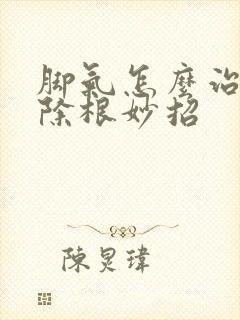 脚氣怎麽治
除根妙招
陳炅瑋